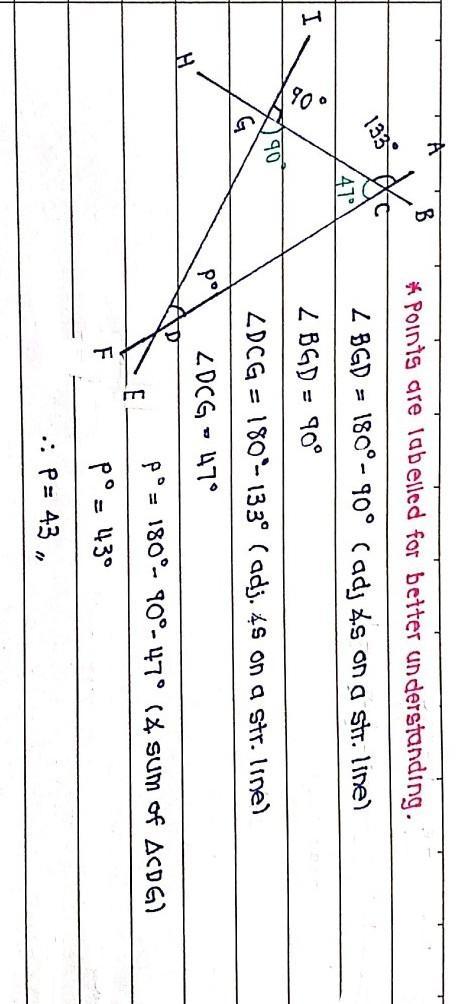 * Points are labelled for better understanding.
A
B
C
133°
47°
I
H
90°
G
90°
p°
D
F
E
∠BGD = 180° - 90° (adj ∠s on a str. line)
∠BGD = 90°
∠DCG = 180° - 133° (adj. ∠s on a str. line)
∠DCG = 47°
p° = 180° - 90° - 47° (∠ sum of △CDG)
p° = 43°
∴ p = 43 〃